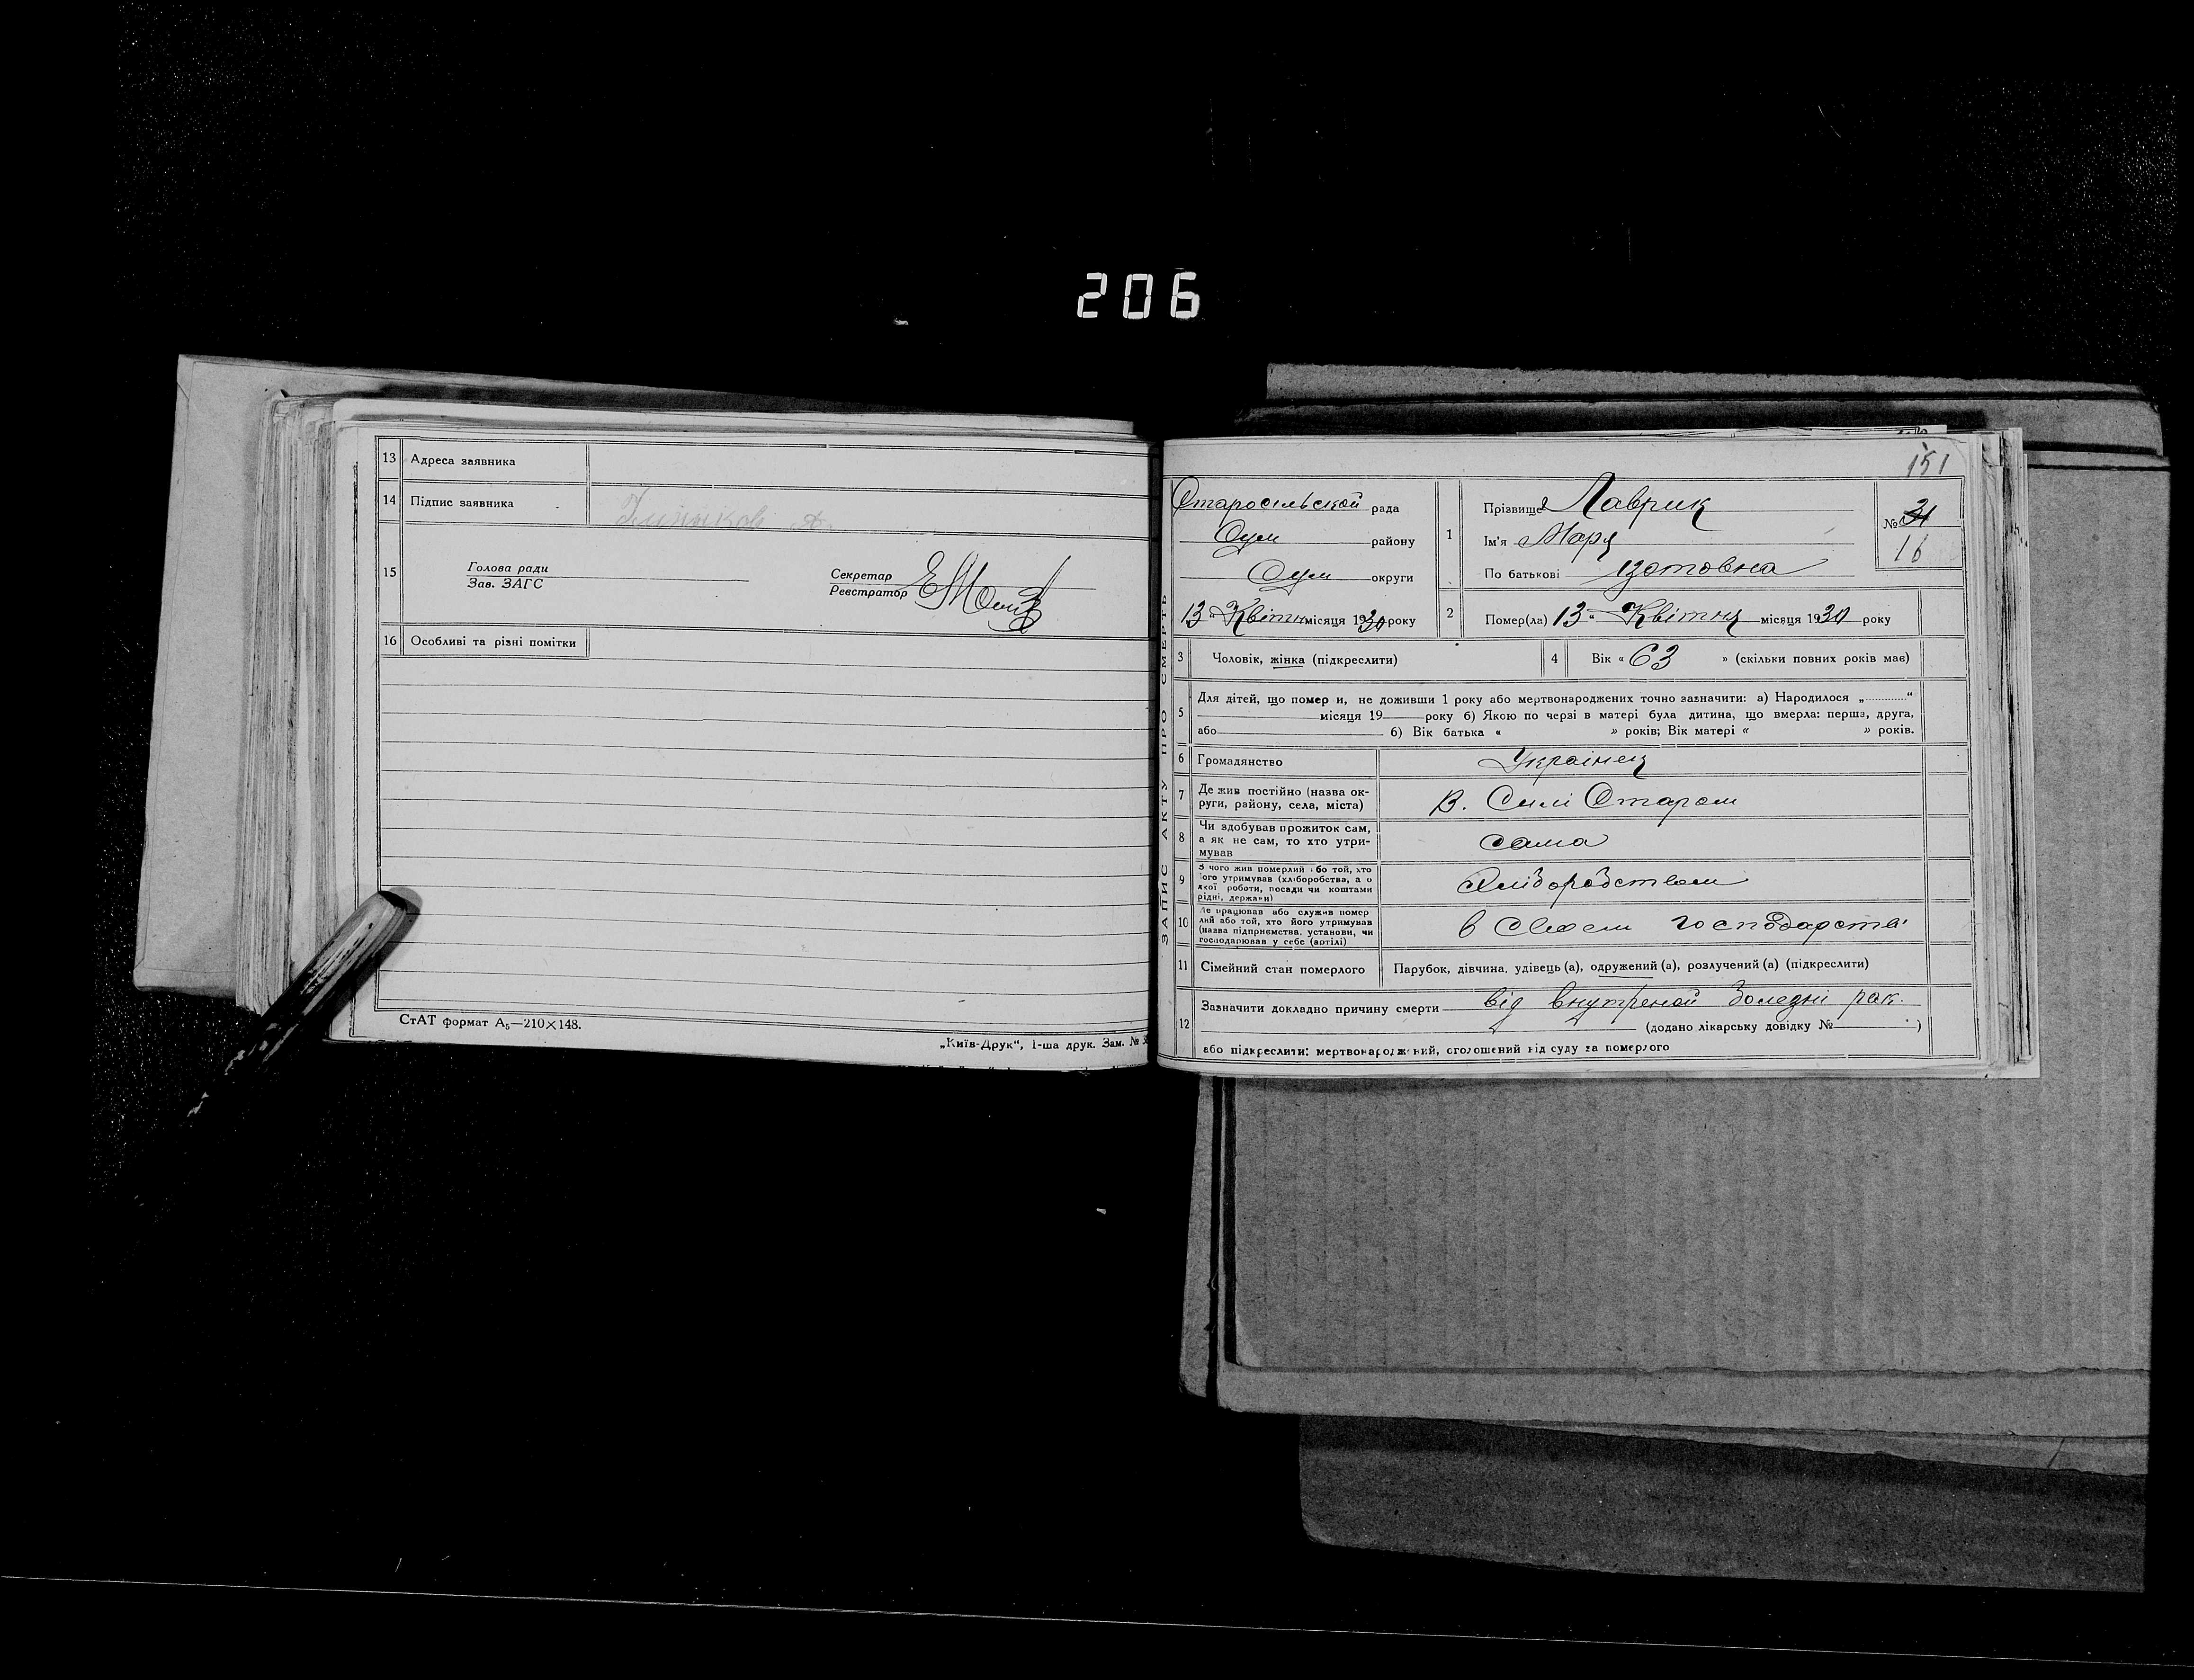 206
13 Адреса заявника
14 Підпис заявника
15 Голова ради
Зав. ЗАГС
Секретар
Реєстратор
16 Особливі та різні помітки
СтАТ формат А₅—210×148.
„Київ-Друк“, 1-ша друк. Зам. №
151
ЗАПИС АКТУ ПРО СМЕРТЬ
Старосільской рада
Сум району
Сум округи
13 " Квітня місяця 1930 року
1 Прізвище Лаврик
Ім'я Маря
По батькові Изотовна
№ 31
16
2 Помер(ла) 13 " Квітня місяця 1930 року
3 Чоловік, жінка (підкреслити)
4 Вік « 63 » (скільки повних років має)
5 Для дітей, що помер и, не доживши 1 року або мертвонароджених точно зазначити: а) Народилося „............“
місяця 19 року б) Якою по черзі в матері була дитина, що вмерла: перша, друга,
або б) Вік батька « » років; Вік матері « » років.
6 Громадянство Українец
7 Де жив постійно (назва ок-
руги, району, села, міста) В. Силі Старом
8 Чи здобував прожиток сам,
а як не сам, то хто утри-
мував сама
9 З чого жив померлий або той, хто
його утримував (хліборобства, а о
якої роботи, посади чи коштами
рідні, держави) Хлібородством
10 Де працював або служив помер
лий або той, хто його утримував
(назва підприємства, установи, чи
господарював у себе (артілі) в своєм господарстві
11 Сімейний стан померлого Парубок, дівчина, удівець (а), одружений (а), розлучений (а) (підкреслити)
12 Зазначити докладно причину смерти від внутреной болезні рак.
(додано лікарську довідку № )
або підкреслити: мертвонароджений, оголошений від суду за померлого